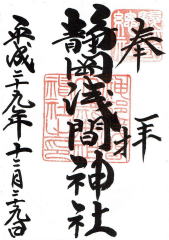 奉拝
静岡浅間神社
平成二十九年十二月二十九日